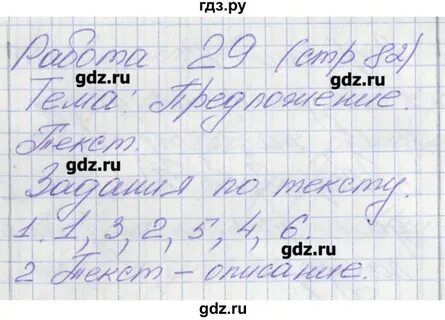 гдз.ру
Работа 29 (стр 82)
gdz.ru
gdz.ru
Тема: Предложение.
gdz.ru
Текст.
gdz.ru
Задания по тексту.
1. 1, 3, 2, 5, 4, 6.
gdz.ru
gdz.ru
2 Текст – описание.
гдз.ру